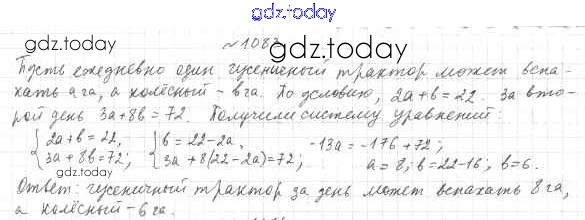 gdz.today
gdz.today
№1083
gdz.today
Пусть ежедневно один гусеничный трактор может вспа-
хать a га, а колёсный - b га. По условию, 2a+b=22. За вто-
рой день 3a+8b=72. Получили систему уравнений:
{2a+b=22, {b=22-2a, -13a=-176+72;
{3a+8b=72; {3a+8(22-2a)=72; a=8; b=22-16; b=6.
gdz.today
Ответ: гусеничный трактор за день может вспахать 8 га,
а колёсный - 6 га.